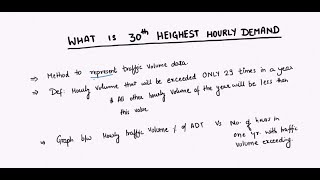 WHAT IS 30th HEIGHEST HOURLY DEMAND
⇒ Method to represent traffic volume data
⇒ Def: Hourly Volume that will be exceeded ONLY 29 times in a year
& All other hourly volume of the year will be less than
this value
⇒ Graph b/w Hourly traffic Volume % of ADT Vs No. of hours in
one yr. with traffic
volume exceeding.